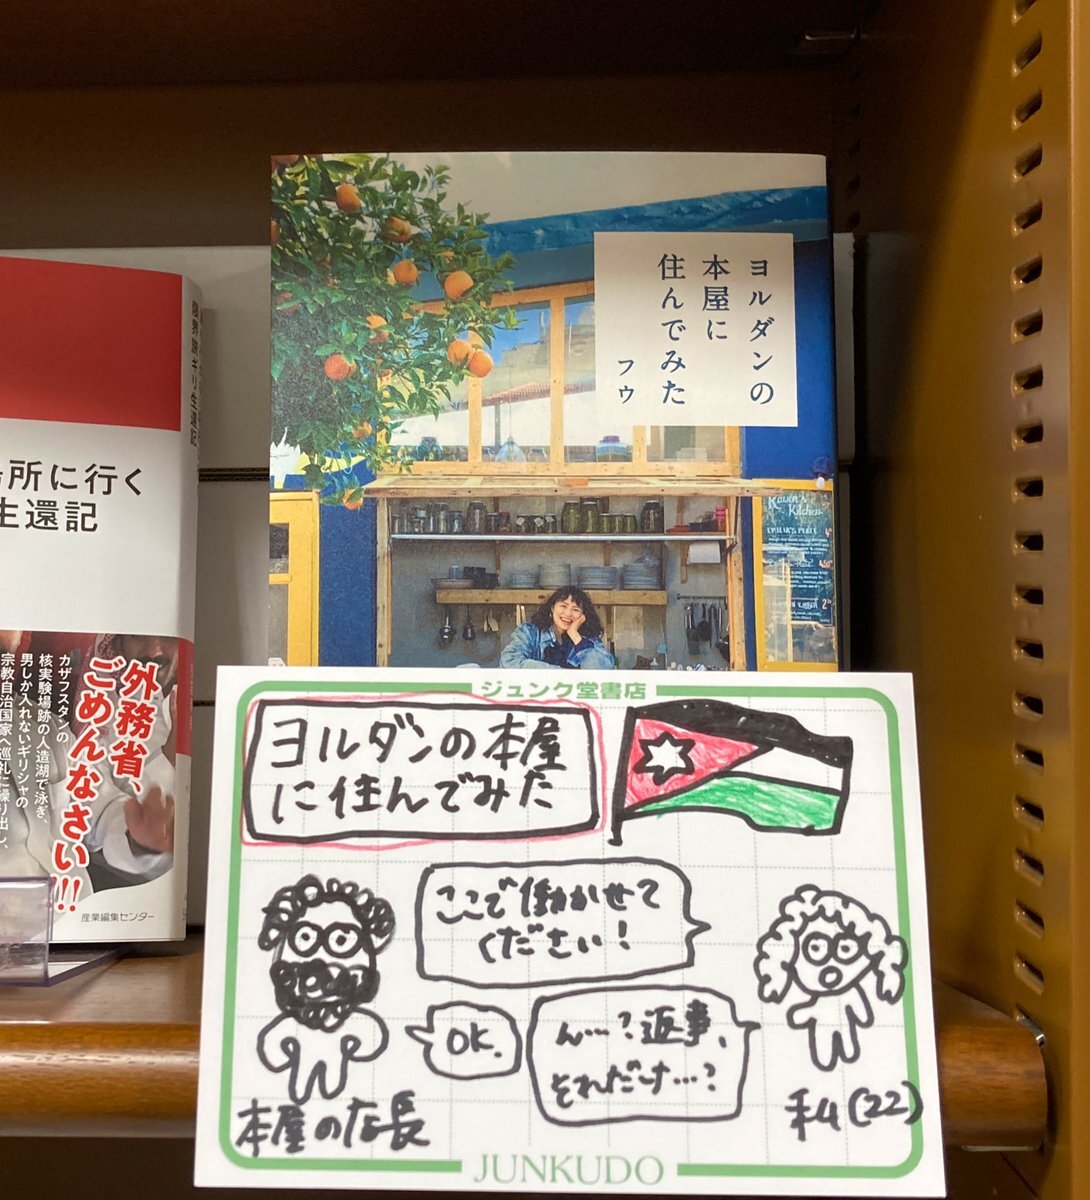 ヨルダンの
本屋に
住んでみた
フウ
Kitchen
限界旅ギリ生還記
場所に行く
生還記
外務省、
ごめんなさい!!!
カザフスタンの
核実験場跡の人造湖で泳ぎ、
男しか入れないギリシャの
宗教自治国家へ巡礼に繰り出し、
産業編集センター
ジュンク堂書店
ヨルダンの本屋
に住んでみた
ここで働かせて
ください!
OK.
ん…?返事、
それだけ…?
本屋の店長
私(22)
JUNKUDO